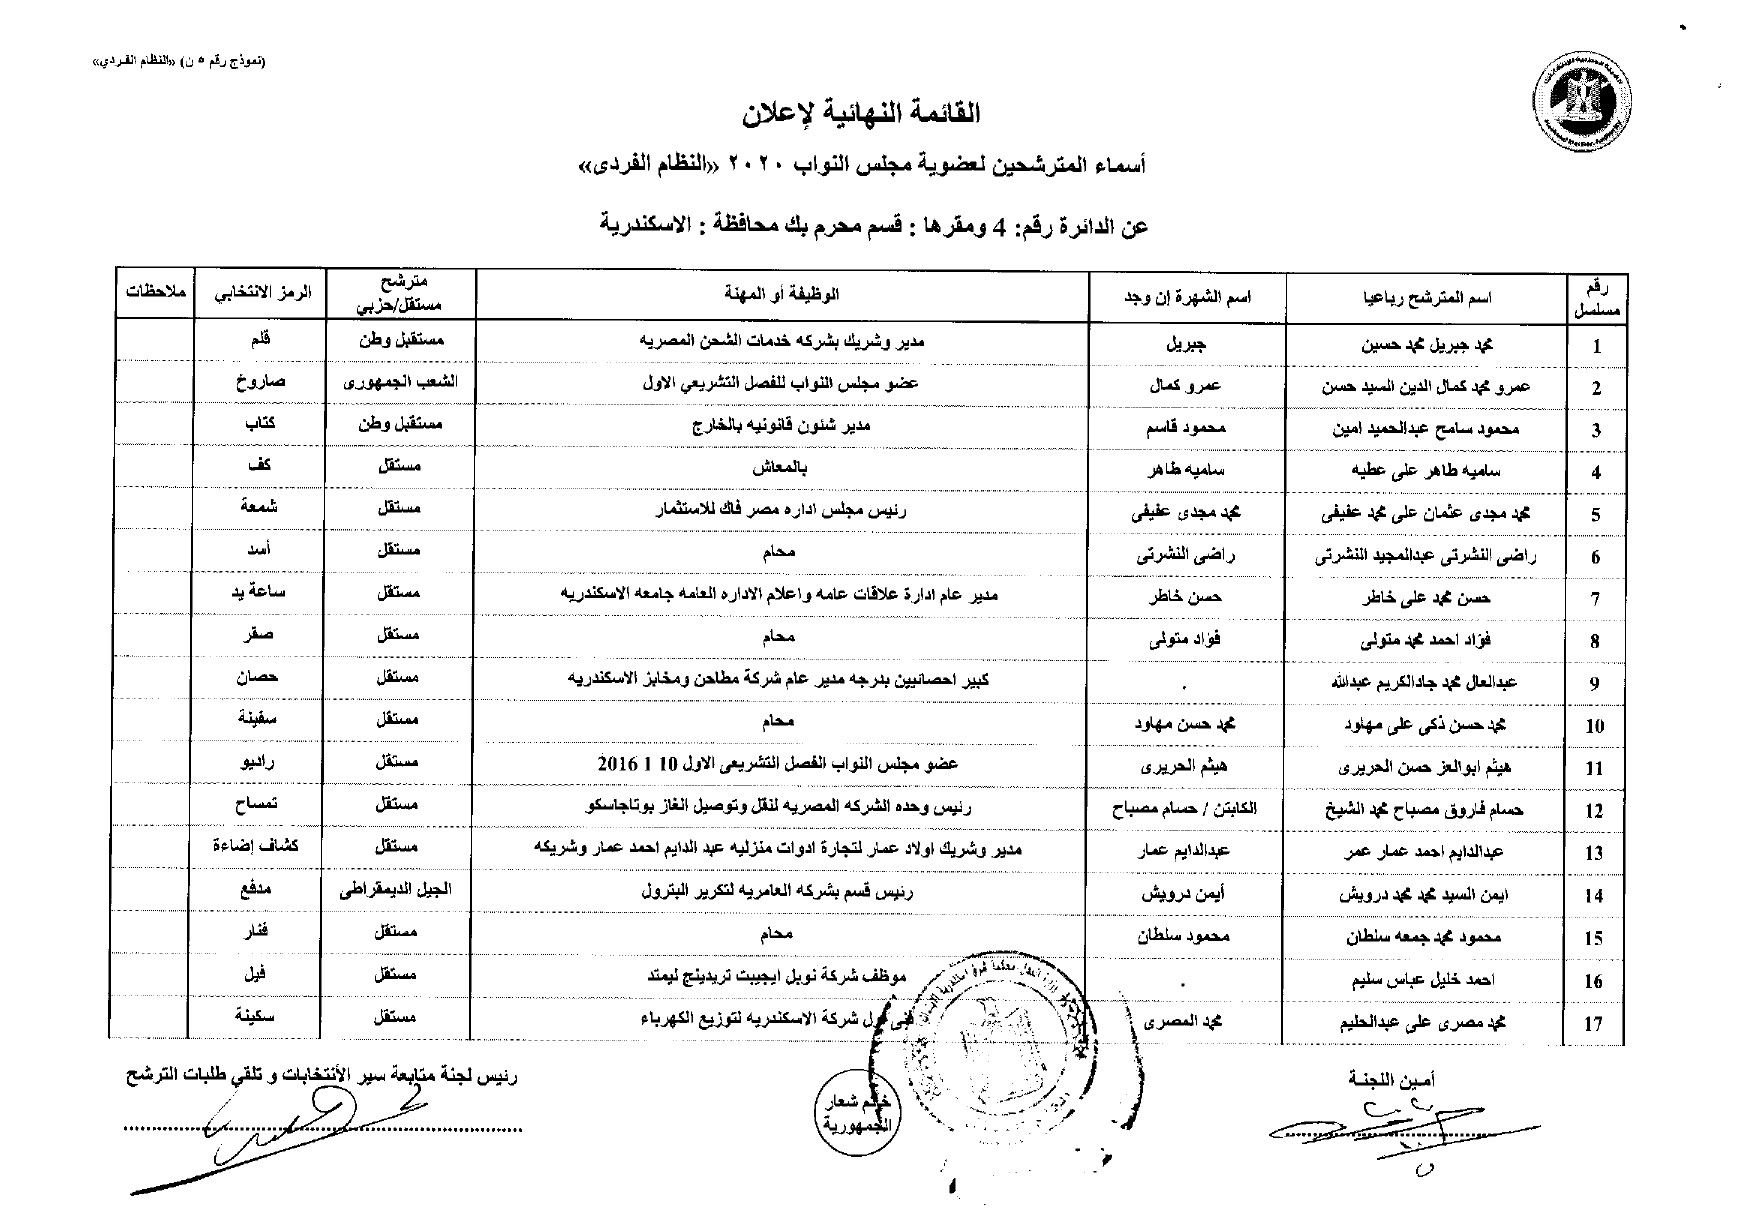 (نموذج رقم ٥ ن) «النظام الفردي»
القائمة النهائية لإعلان
أسماء المترشحين لعضوية مجلس النواب ٢٠٢٠ «النظام الفردى»
عن الدائرة رقم: 4 ومقرها : قسم محرم بك محافظة : الاسكندرية
رقم مسلسل | اسم المترشح رباعيا | اسم الشهرة إن وجد | الوظيفة أو المهنة | مترشح مستقل/حزبي | الرمز الانتخابي | ملاحظات
1 | محمد جبريل محمد حسين | جبريل | مدير وشريك بشركه خدمات الشحن المصريه | مستقبل وطن | قلم
2 | عمرو محمد كمال الدين السيد حسن | عمرو كمال | عضو مجلس النواب للفصل التشريعي الاول | الشعب الجمهورى | صاروخ
3 | محمود سامح عبدالحميد امين | محمود قاسم | مدير شئون قانونيه بالخارج | مستقبل وطن | كتاب
4 | ساميه طاهر على عطيه | ساميه طاهر | بالمعاش | مستقل | كف
5 | محمد مجدى عثمان على محمد عفيفى | محمد مجدى عفيفى | رئيس مجلس اداره مصر فاك للاستثمار | مستقل | شمعة
6 | راضى النشرتى عبدالمجيد النشرتى | راضى النشرتى | محام | مستقل | أسد
7 | حسن محمد على خاطر | حسن خاطر | مدير عام ادارة علاقات عامه واعلام الاداره العامه جامعه الاسكندريه | مستقل | ساعة يد
8 | فؤاد احمد محمد متولى | فؤاد متولى | محام | مستقل | صقر
9 | عبدالعال محمد جادالكريم عبدالله | . | كبير احصائيين بدرجه مدير عام شركة مطاحن ومخابز الاسكندريه | مستقل | حصان
10 | محمد حسن ذكى على مهاود | محمد حسن مهاود | محام | مستقل | سفينة
11 | هيثم ابوالعز حسن الحريرى | هيثم الحريرى | عضو مجلس النواب الفصل التشريعى الاول 10 1 2016 | مستقل | راديو
12 | حسام فاروق مصباح محمد الشيخ | الكابتن / حسام مصباح | رئيس وحده الشركه المصريه لنقل وتوصيل الغاز بوتاجاسكو | مستقل | تمساح
13 | عبدالدايم احمد عمار عمر | عبدالدايم عمار | مدير وشريك اولاد عمار لتجارة ادوات منزليه عبد الدايم احمد عمار وشريكه | مستقل | كشاف إضاءة
14 | ايمن السيد محمد محمد درويش | أيمن درويش | رئيس قسم بشركه العامريه لتكرير البترول | الجيل الديمقراطى | مدفع
15 | محمود محمد جمعه سلطان | محمود سلطان | محام | مستقل | فنار
16 | احمد خليل عباس سليم | . | موظف شركة نوبل ايجيبت تريدينج ليمتد | مستقل | فيل
17 | محمد مصرى على عبدالحليم | محمد المصرى | شركة الاسكندريه لتوزيع الكهرباء | مستقل | سكينة
أمين اللجنة
رئيس لجنة متابعة سير الأنتخابات و تلقي طلبات الترشح
خاتم شعار
الجمهورية